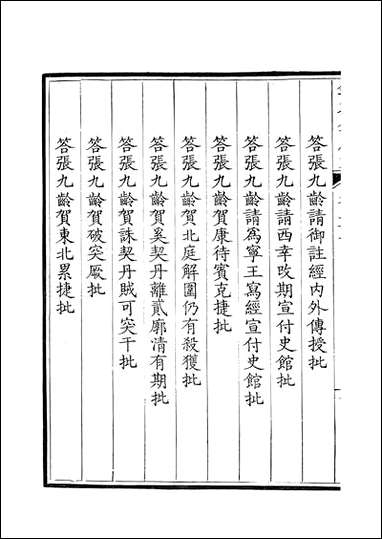 答張九齡請御註經內外傳授批
答張九齡請西幸改期宣付史館批
答張九齡請爲寧王寫經宣付史館批
答張九齡賀康待賓克捷批
答張九齡賀北庭解圍仍有殺獲批
答張九齡賀奚契丹離貳廓清有期批
答張九齡賀誅契丹賊可突干批
答張九齡賀破突厥批
答張九齡賀東北累捷批